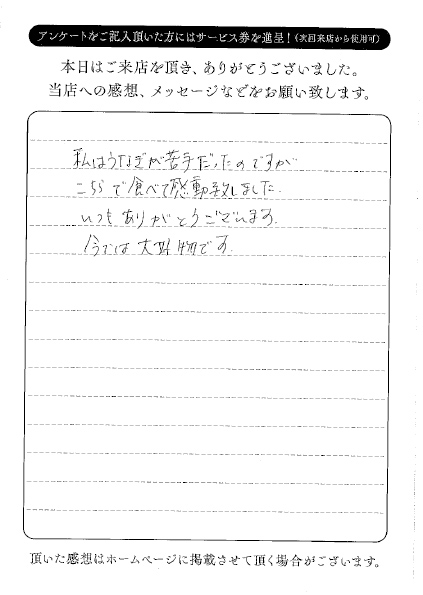 アンケートをご記入頂いた方にはサービス券を進呈！(次回来店から使用可)
本日はご来店を頂き、ありがとうございました。
当店への感想、メッセージなどをお願い致します。
私はうなぎが苦手だったのですが
こちらで食べて感動致しました。
いつもありがとうございます。
今では大好物です。
頂いた感想はホームページに掲載させて頂く場合がございます。